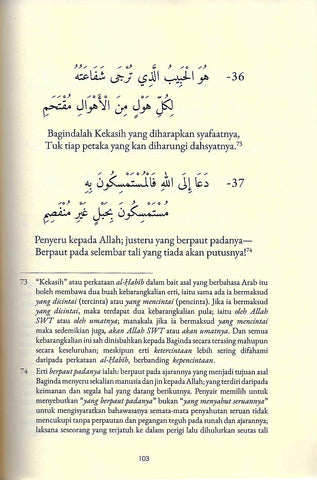 36- هُوَ الْحَبِيبُ الَّذِي تُرْجَى شَفَاعَتُهُ
لِكُلِّ هَوْلٍ مِنَ الْأَهْوَالِ مُقْتَحَمِ
Bagindalah Kekasih yang diharapkan syafaatnya,
Tuk tiap petaka yang kan diharungi dahsyatnya.73
37- دَعَا إِلَى اللهِ فَالْمُسْتَمْسِكُونَ بِهِ
مُسْتَمْسِكُونَ بِحَبْلٍ غَيْرِ مُنْفَصِمِ
Penyeru kepada Allah; justeru yang berpaut padanya—
Berpaut pada selembar tali yang tiada akan putusnya!74
73 “Kekasih” atau perkataan al-Habib dalam bait asal yang berbahasa Arab itu
boleh membawa dua buah kebarangkalian erti, iaitu sama ada ia bermaksud
yang dicintai (tercinta) atau yang mencintai (pencinta). Jika ia bermaksud
yang dicintai, maka terdapat dua kebarangkalian pula; iaitu oleh Allah
SWT atau oleh umatnya; manakala jika ia bermaksud yang mencintai
maka sedemikian juga, akan Allah SWT atau akan umatnya. Dan semua
kebarangkalian ini sah dinisbahkan kepada Baginda secara terasing mahupun
secara keseluruhan; meskipun erti kecintaan lebih sering difahami
daripada perkataan al-Habib, berbanding kepencintaan.
74 Erti berpaut padanya ialah: berpaut pada ajarannya yang menjadi tujuan asal
Baginda menyeru sekalian manusia dan jin kepada Allah; yang terdiri daripada
keimanan dan segala hal yang datang berikutnya. Penyair memilih untuk
menyebutkan “yang berpaut padanya” bukan “yang menyahut seruannya”
untuk mengisyaratkan bahawasanya semata-mata penyahutan seruan tidak
mencukupi tanpa berpautan dan pegangan teguh pada sunah dan ajarannya;
laksana seseorang yang terjatuh ke dalam perigi lalu dihulurkan seutas tali
103